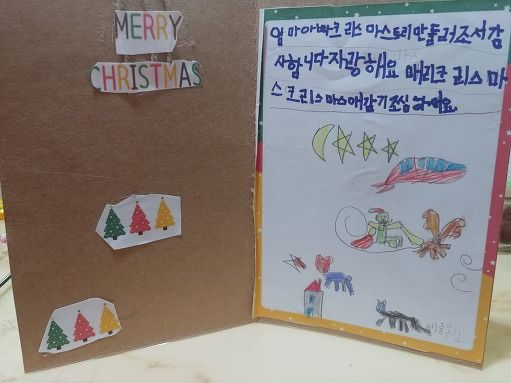 MERRY
CHRISTMAS
엄마아빠크리스마스트리만들러조서감
사합니다자랑해요 매리크리스마
스 크리스마스애감기조심하세요